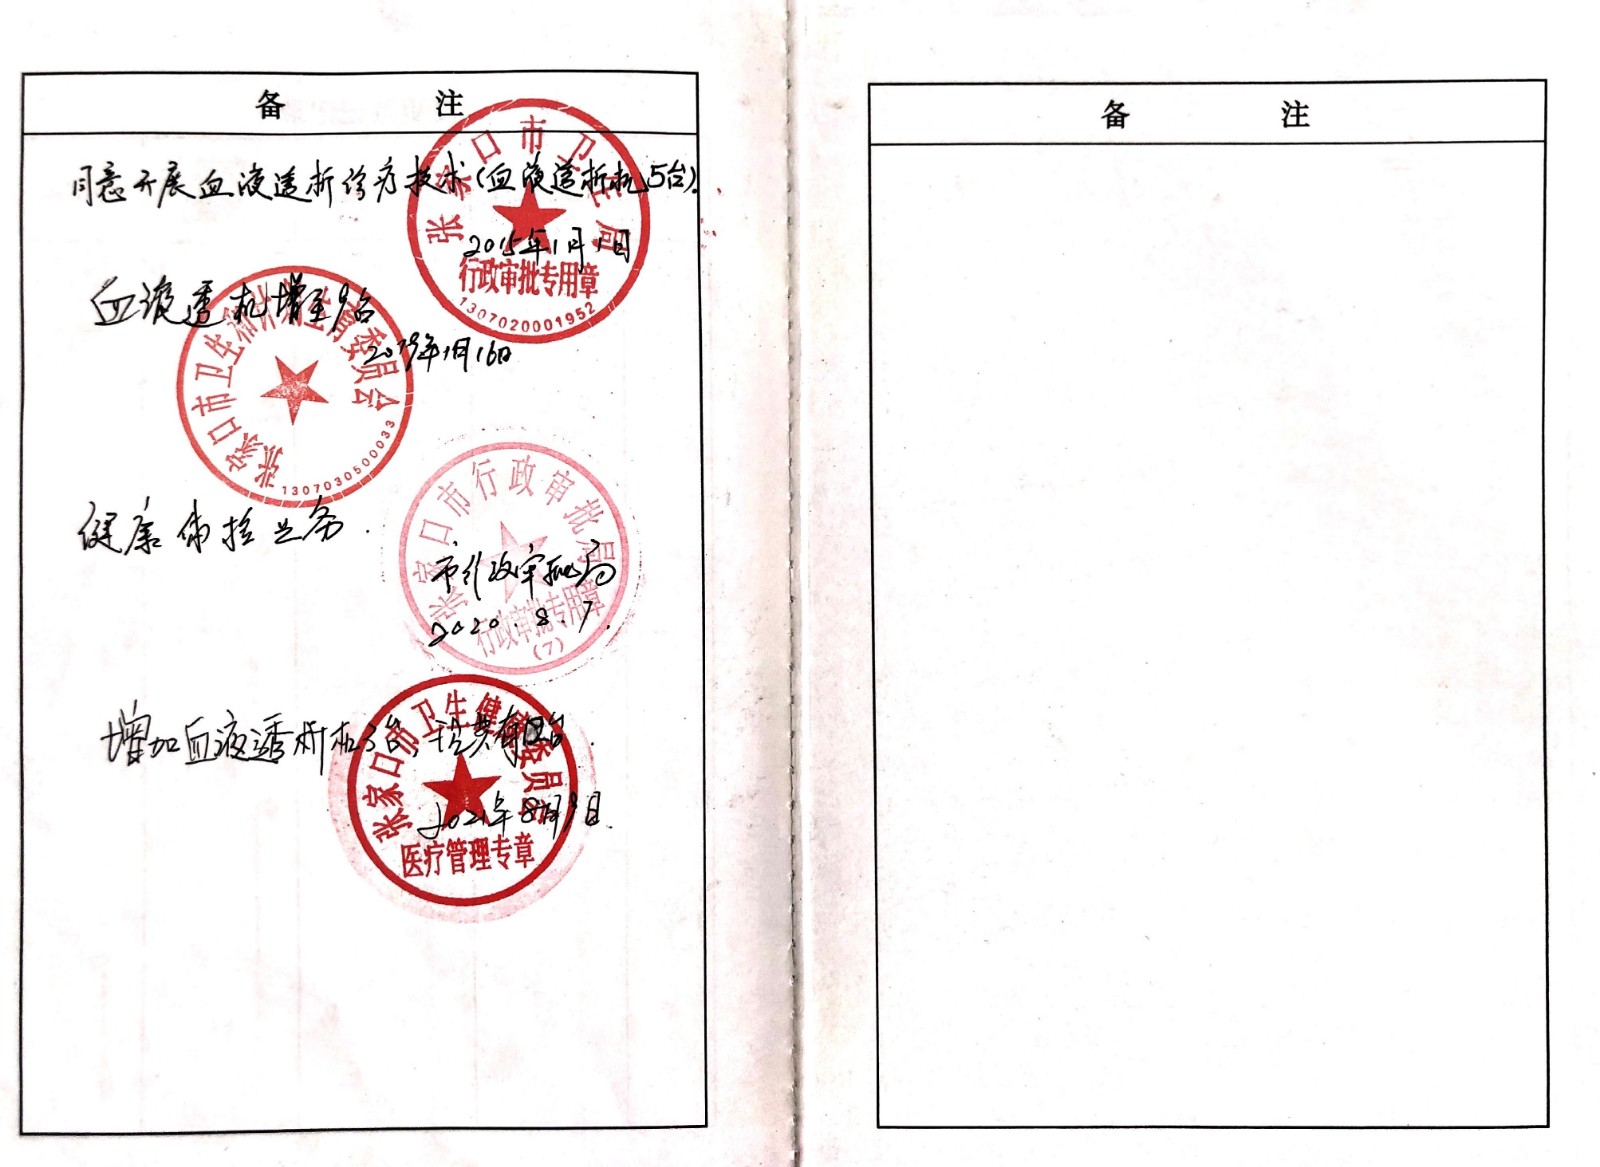 备 注
同意开展血液透析诊疗技术(血液透析机5台).
张家口市卫生局
2015年1月1日
行政审批专用章
1307020001952
血液透机增至9台
2019年1月16日
张家口市卫生和计划生育委员会
1307030500033
健康体检业务.
张家口市行政审批局
市行政审批局
2020.8.7.
行政审批专用章
(7)
增加血液透析机3台,计共有12台.
张家口市卫生健康委员会
2021年8月9日.
医疗管理专章
备 注